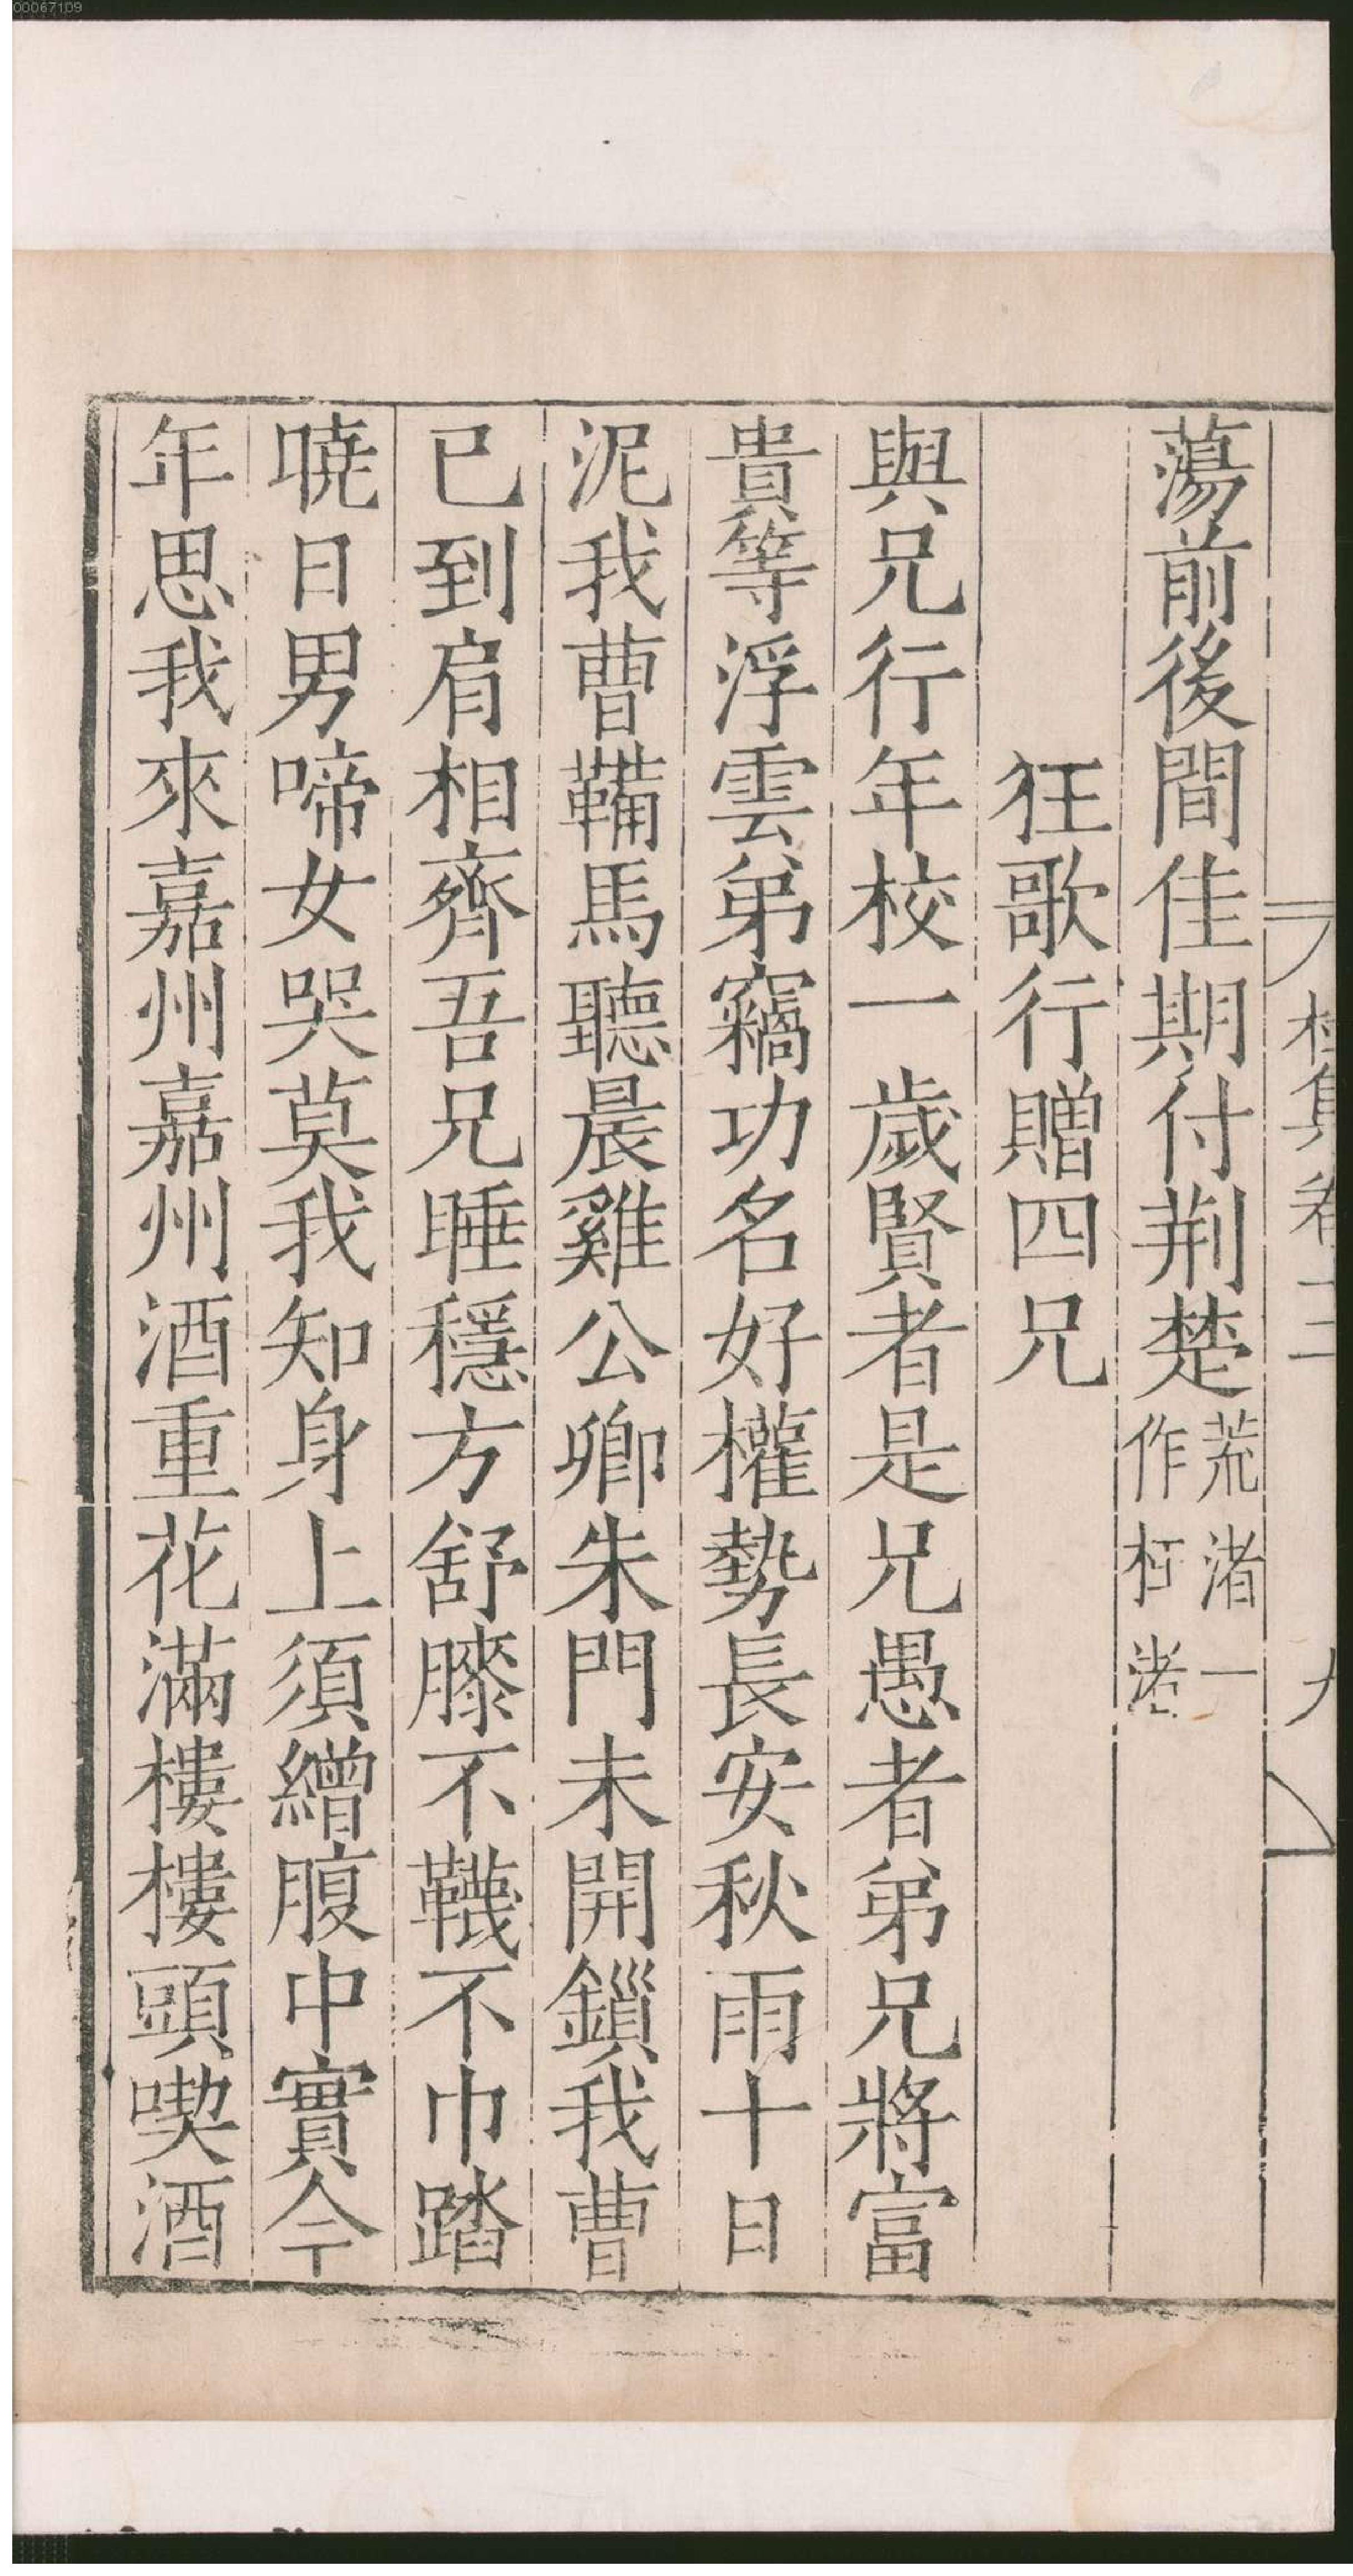 00067109
杜集卷二
九
蕩前後間佳期付荆楚荒渚一作杇渚
狂歌行贈四兄
與兄行年校一歲賢者是兄愚者弟兄將富
貴等浮雲弟竊功名好權勢長安秋雨十日
泥我曹鞴馬聽晨雞公卿朱門未開鎖我曹
已到肩相齊吾兄睡穩方舒膝不韈不巾踏
曉日男啼女哭莫我知身上須繒腹中實今
年思我來嘉州嘉州酒重花滿樓樓頭喫酒